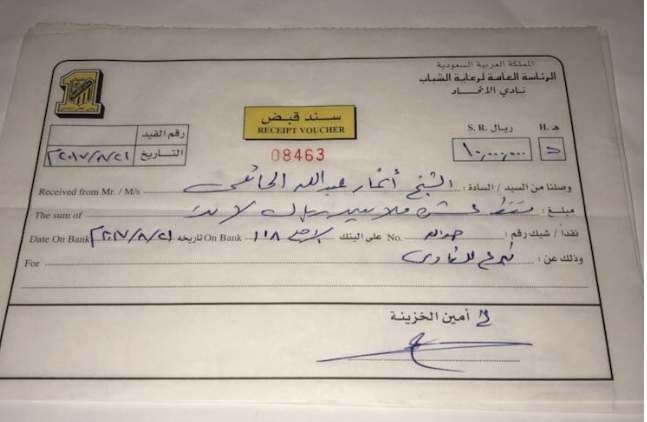 المملكة العربية السعودية
الرئاسة العامة لرعاية الشباب
نادي الاتحاد
سند قبض
RECEIPT VOUCHER
هـ. H. ريال S. R.
د ١٠,٠٠٠,٠٠٠
رقم القيد
التاريخ ٢٠١٧/٨/٢١
08463
وصلنا من السيد / السادة : الشيخ أنمار عبدالله الحائلي Received from Mr. / M/s
مبلغ : فقط عشرة ملايين ريال لا غير The sum of
نقداً / شيك رقم : No. حواله على البنك الأهلي ١١٨ On Bank تاريخه ٢٠١٧/٨/٢١م Date On Bank
وذلك عن : تبرع للنادي For
أمين الخزينة